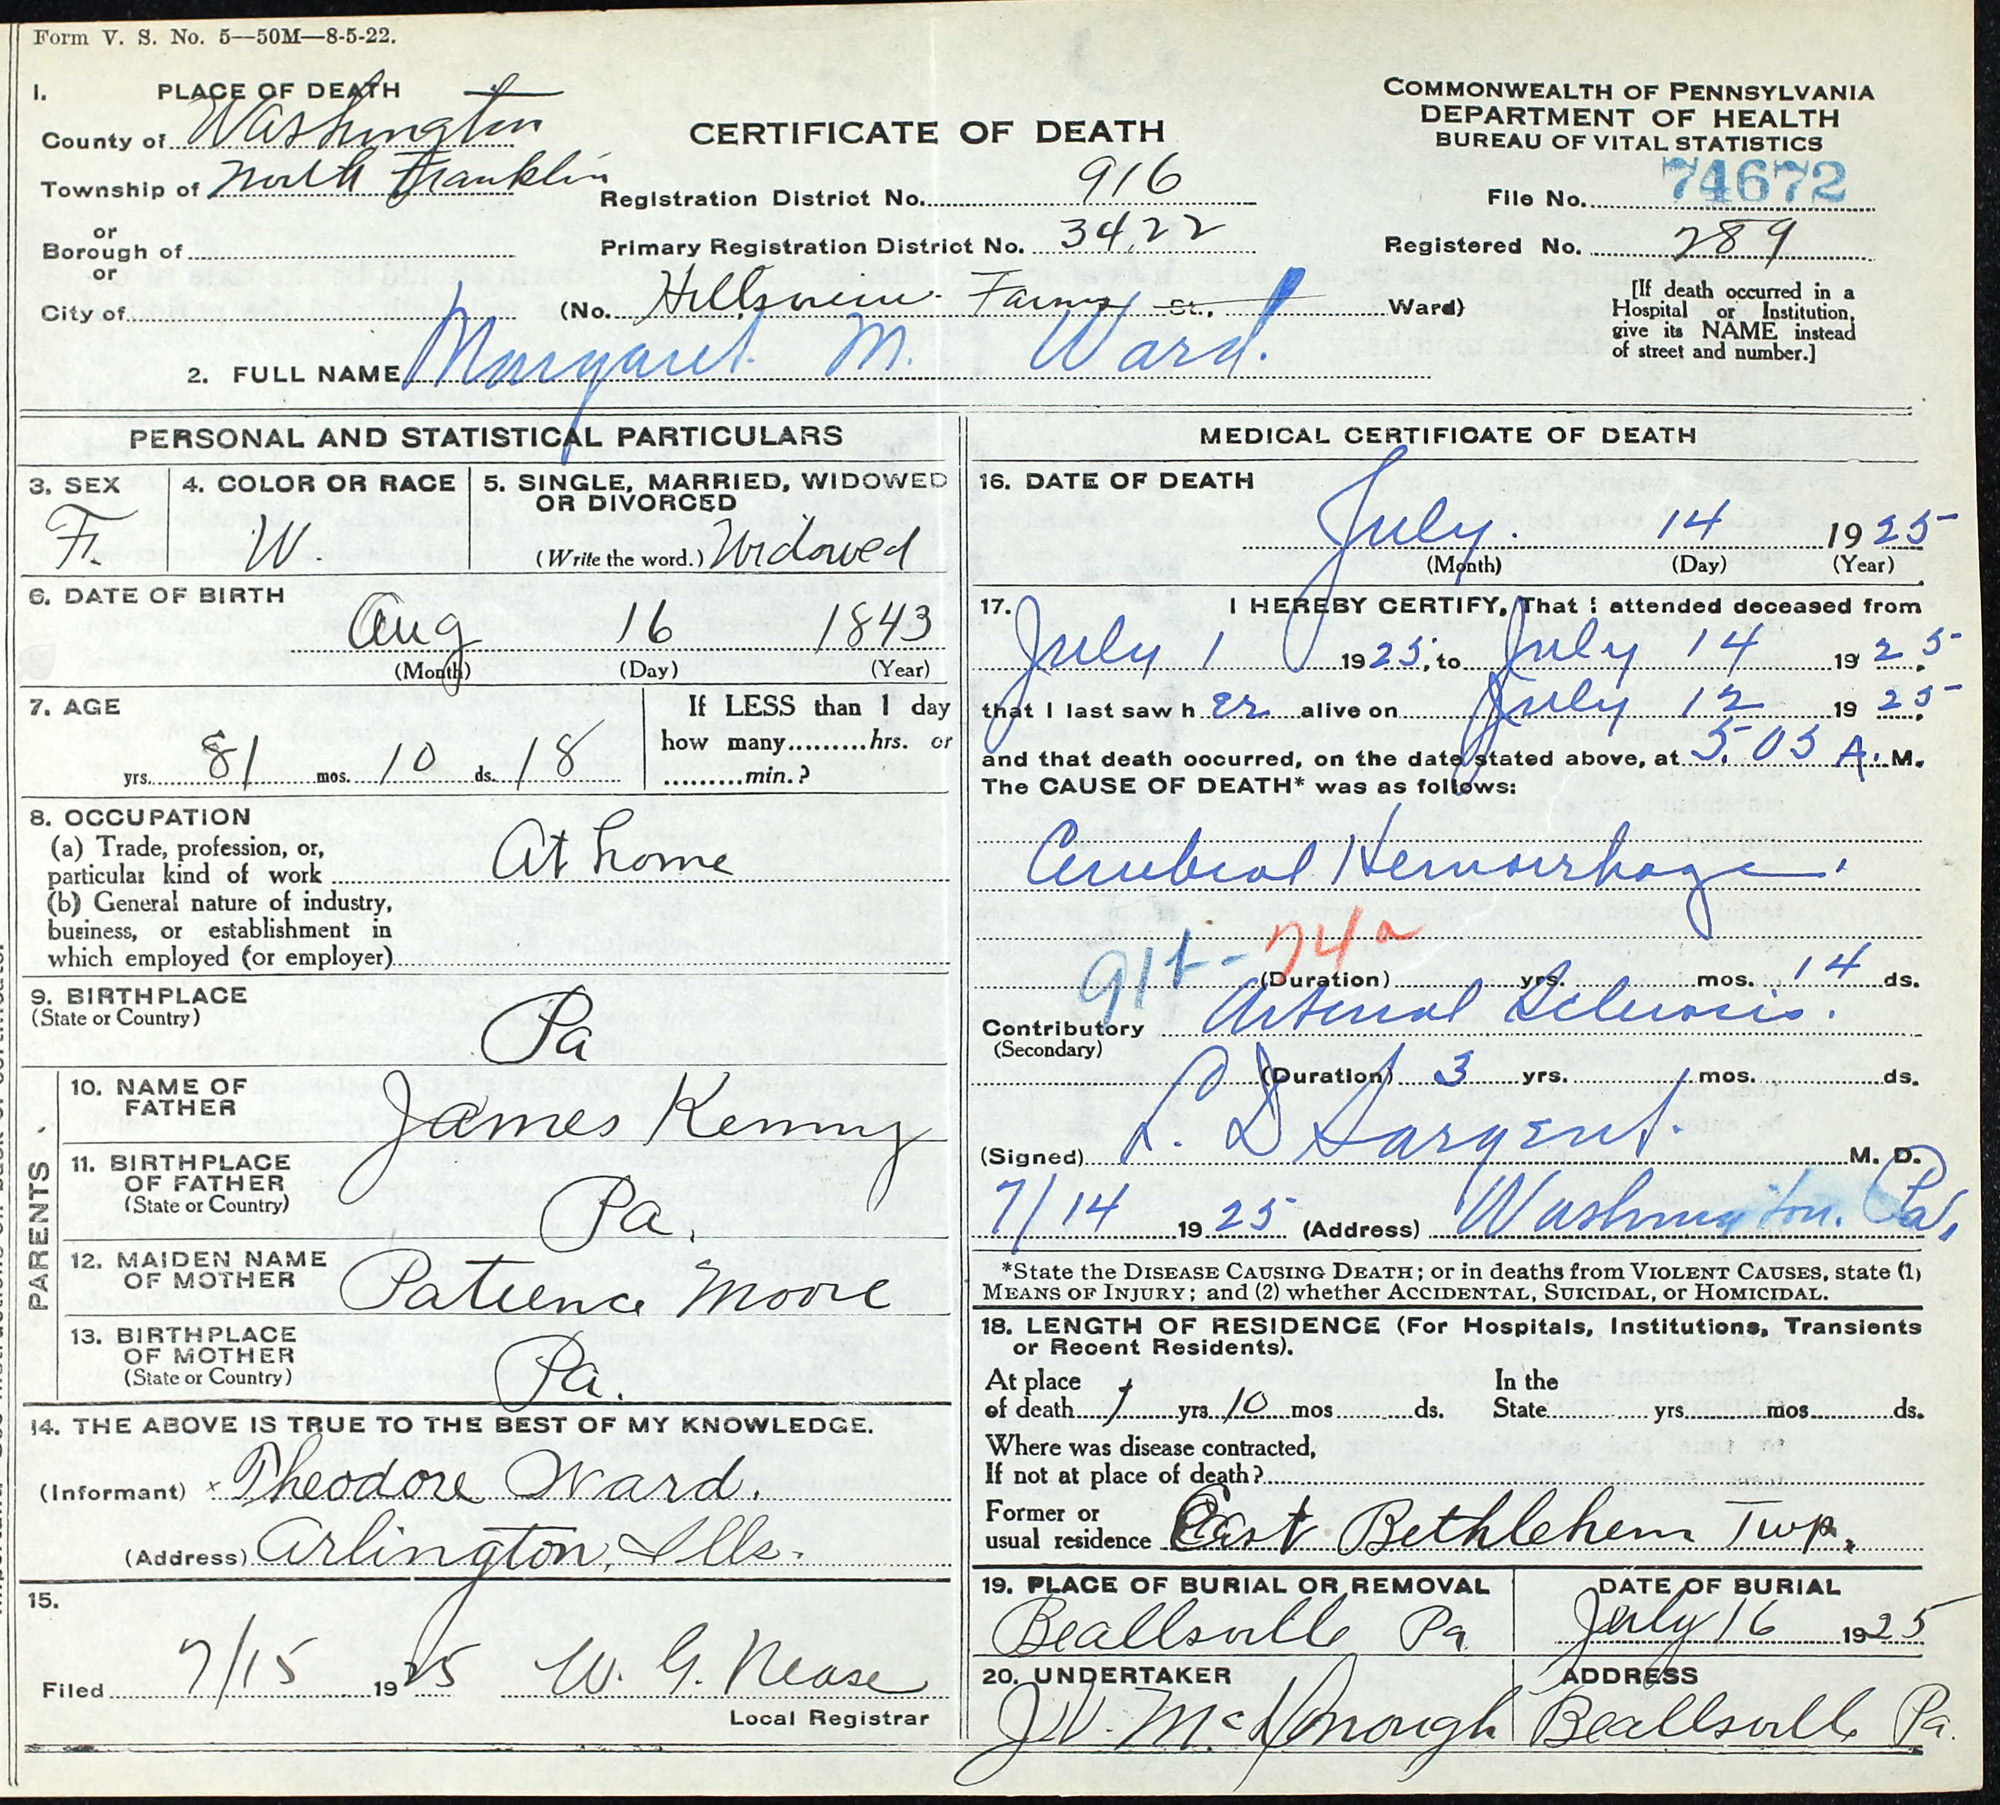 Form V. S. No. 5—50M—8-5-22.
1. PLACE OF DEATH
County of Washington
Township of North Franklin
or
Borough of
or
City of
CERTIFICATE OF DEATH
Registration District No. 916
Primary Registration District No. 3422
(No. Hillsview Farms St., Ward)
COMMONWEALTH OF PENNSYLVANIA
DEPARTMENT OF HEALTH
BUREAU OF VITAL STATISTICS
File No. 74672
Registered No. 289
[If death occurred in a
Hospital or Institution,
give its NAME instead
of street and number.]
2. FULL NAME Margaret M. Ward.
PERSONAL AND STATISTICAL PARTICULARS
3. SEX
F.
4. COLOR OR RACE
W.
5. SINGLE, MARRIED, WIDOWED
OR DIVORCED
(Write the word.) Widowed
6. DATE OF BIRTH
Aug 16 1843
(Month) (Day) (Year)
7. AGE
yrs. 81 mos. 10 ds. 18
If LESS than 1 day
how many.........hrs. or
.........min.?
8. OCCUPATION
(a) Trade, profession, or,
particular kind of work At home
(b) General nature of industry,
business, or establishment in
which employed (or employer)
9. BIRTHPLACE
(State or Country)
Pa
PARENTS
10. NAME OF
FATHER
James Kenny
11. BIRTHPLACE
OF FATHER
(State or Country)
Pa.
12. MAIDEN NAME
OF MOTHER
Patience Moore
13. BIRTHPLACE
OF MOTHER
(State or Country)
Pa.
14. THE ABOVE IS TRUE TO THE BEST OF MY KNOWLEDGE.
(Informant) x Theodore Ward.
(Address) Arlington, Ills.
15.
Filed 7/15 1925 W. G. Nease
Local Registrar
MEDICAL CERTIFICATE OF DEATH
16. DATE OF DEATH
July 14 1925
(Month) (Day) (Year)
17. I HEREBY CERTIFY, That I attended deceased from
July 1 1925, to July 14 1925,
that I last saw her alive on July 12 1925
and that death occurred, on the date stated above, at 5.05 A.M.
The CAUSE OF DEATH* was as follows:
Cerebral Hemorrhage.
91b- 74a
(Duration) yrs. mos. 14 ds.
Contributory Arterial Sclerosis.
(Secondary)
(Duration) 3 yrs. mos. ds.
(Signed) L. D Sargent. M. D.
7/14 1925 (Address) Washington. Pa.
*State the DISEASE CAUSING DEATH; or in deaths from VIOLENT CAUSES, state (1)
MEANS OF INJURY; and (2) whether ACCIDENTAL, SUICIDAL, or HOMICIDAL.
18. LENGTH OF RESIDENCE (For Hospitals, Institutions, Transients
or Recent Residents).
At place
of death 1 yrs. 10 mos. ds.
In the
State yrs. mos. ds.
Where was disease contracted,
If not at place of death?
Former or
usual residence East Bethlehem Twp.
19. PLACE OF BURIAL OR REMOVAL
Beallsville Pa
DATE OF BURIAL
July 16 1925
20. UNDERTAKER
J W. McDonough
ADDRESS
Beallsville Pa.